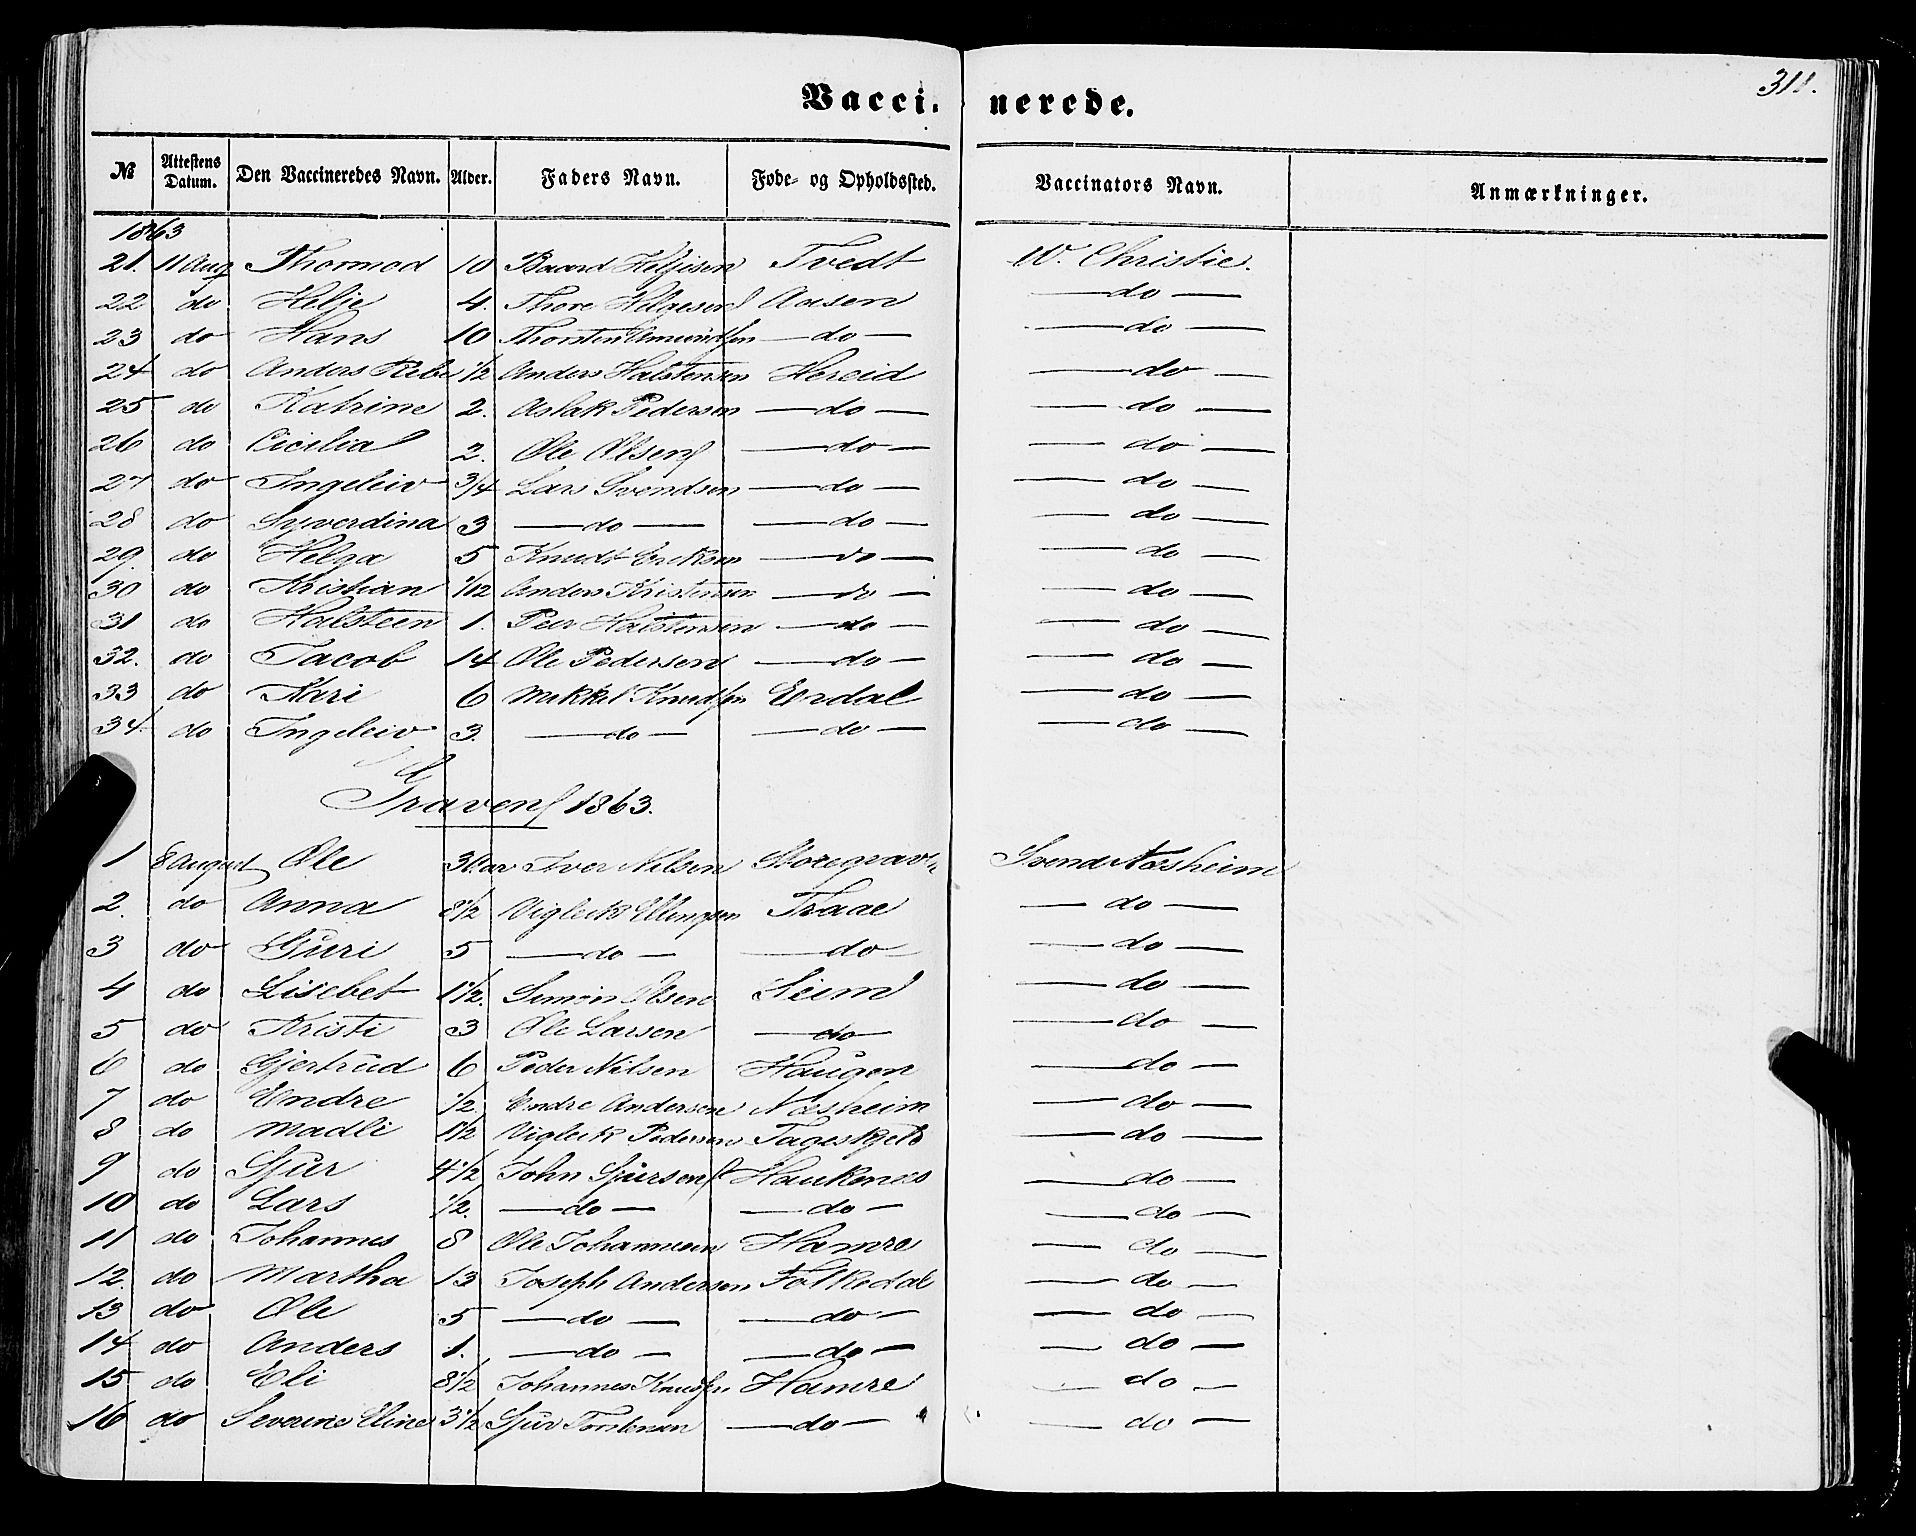 311.
Vacci- nerede.
№ Attestens Datum. Den Vaccineredes Navn. Alder. Faders Navn. Føde- og Opholdssted. Vaccinators Navn. Anmærkninger.
1863
21. 11 Aug Thormod 10 Baard Heljesen Tvedt W. Christie.
22 do Helje 4. Thore Helgesen Aasen — do —
23 do Hans 10 Thorsten Amundsen — do — — do —
24 do Anders 1/2 Anders Halstensen Hereid — do —
25 do Katrine 2. Aslak Pedersen — do — — do —
26 do Cicilia 2. Ole Olsen — do — — do —
27 do Ingeleiv 3/4 Lars Svendsen — do — — do —
28 do Syverdina 3 — do — — do — — do —
29. do Helga 5 Knudt Eriksen — do — — do —
30 do Kristian 1/12 Anders Kristensen — do — — do —
31 do Halsteen 1. Peer Halstensen — do — — do —
32. do Jacob 14 Ole Pedersen — do — — do —
33 do Kari 6 Mikkel Knudsen Erdal — do —
34. do Ingeleiv 3. — do — — do — — do —
Graven 1863.
1 8 August Ole Iver Nilsen Storegraven Svend Næsheim
2. do Anna 8 1/2 Vigleik Ellingsen Traae — do —
3 do Guri 5 — do — — do — — do —
4 do Lisebet 1 1/2. Simon Olsen Seim — do —
5 do Kristi 3 Ole Larsen — do — — do —
6 do Gjertrud 6 Peder Nilsen Haugen — do —
7 do Endre 1/2 Endre Andersen Næsheim — do —
8 do Madli 1 1/2 Vigleik Pedersen — do —
9 do Sjur 4 1/2 John Sjursen Haukenæs — do —
10 do Lars 1/2. — do — — do — — do —
11 do Johannes 8 Ole Johannesen Hamre — do —
12 do Martha 13 Joseph Andersen Folkedal — do —
13 do Ole 5 — do — — do — — do —
14 do Anders 1. — do — — do — — do —
15 do Eli 8 1/2 Johannes Knudsen Hamre — do —
16 do Severine Eline 3 1/2 Sjur Torstensen — do — — do —